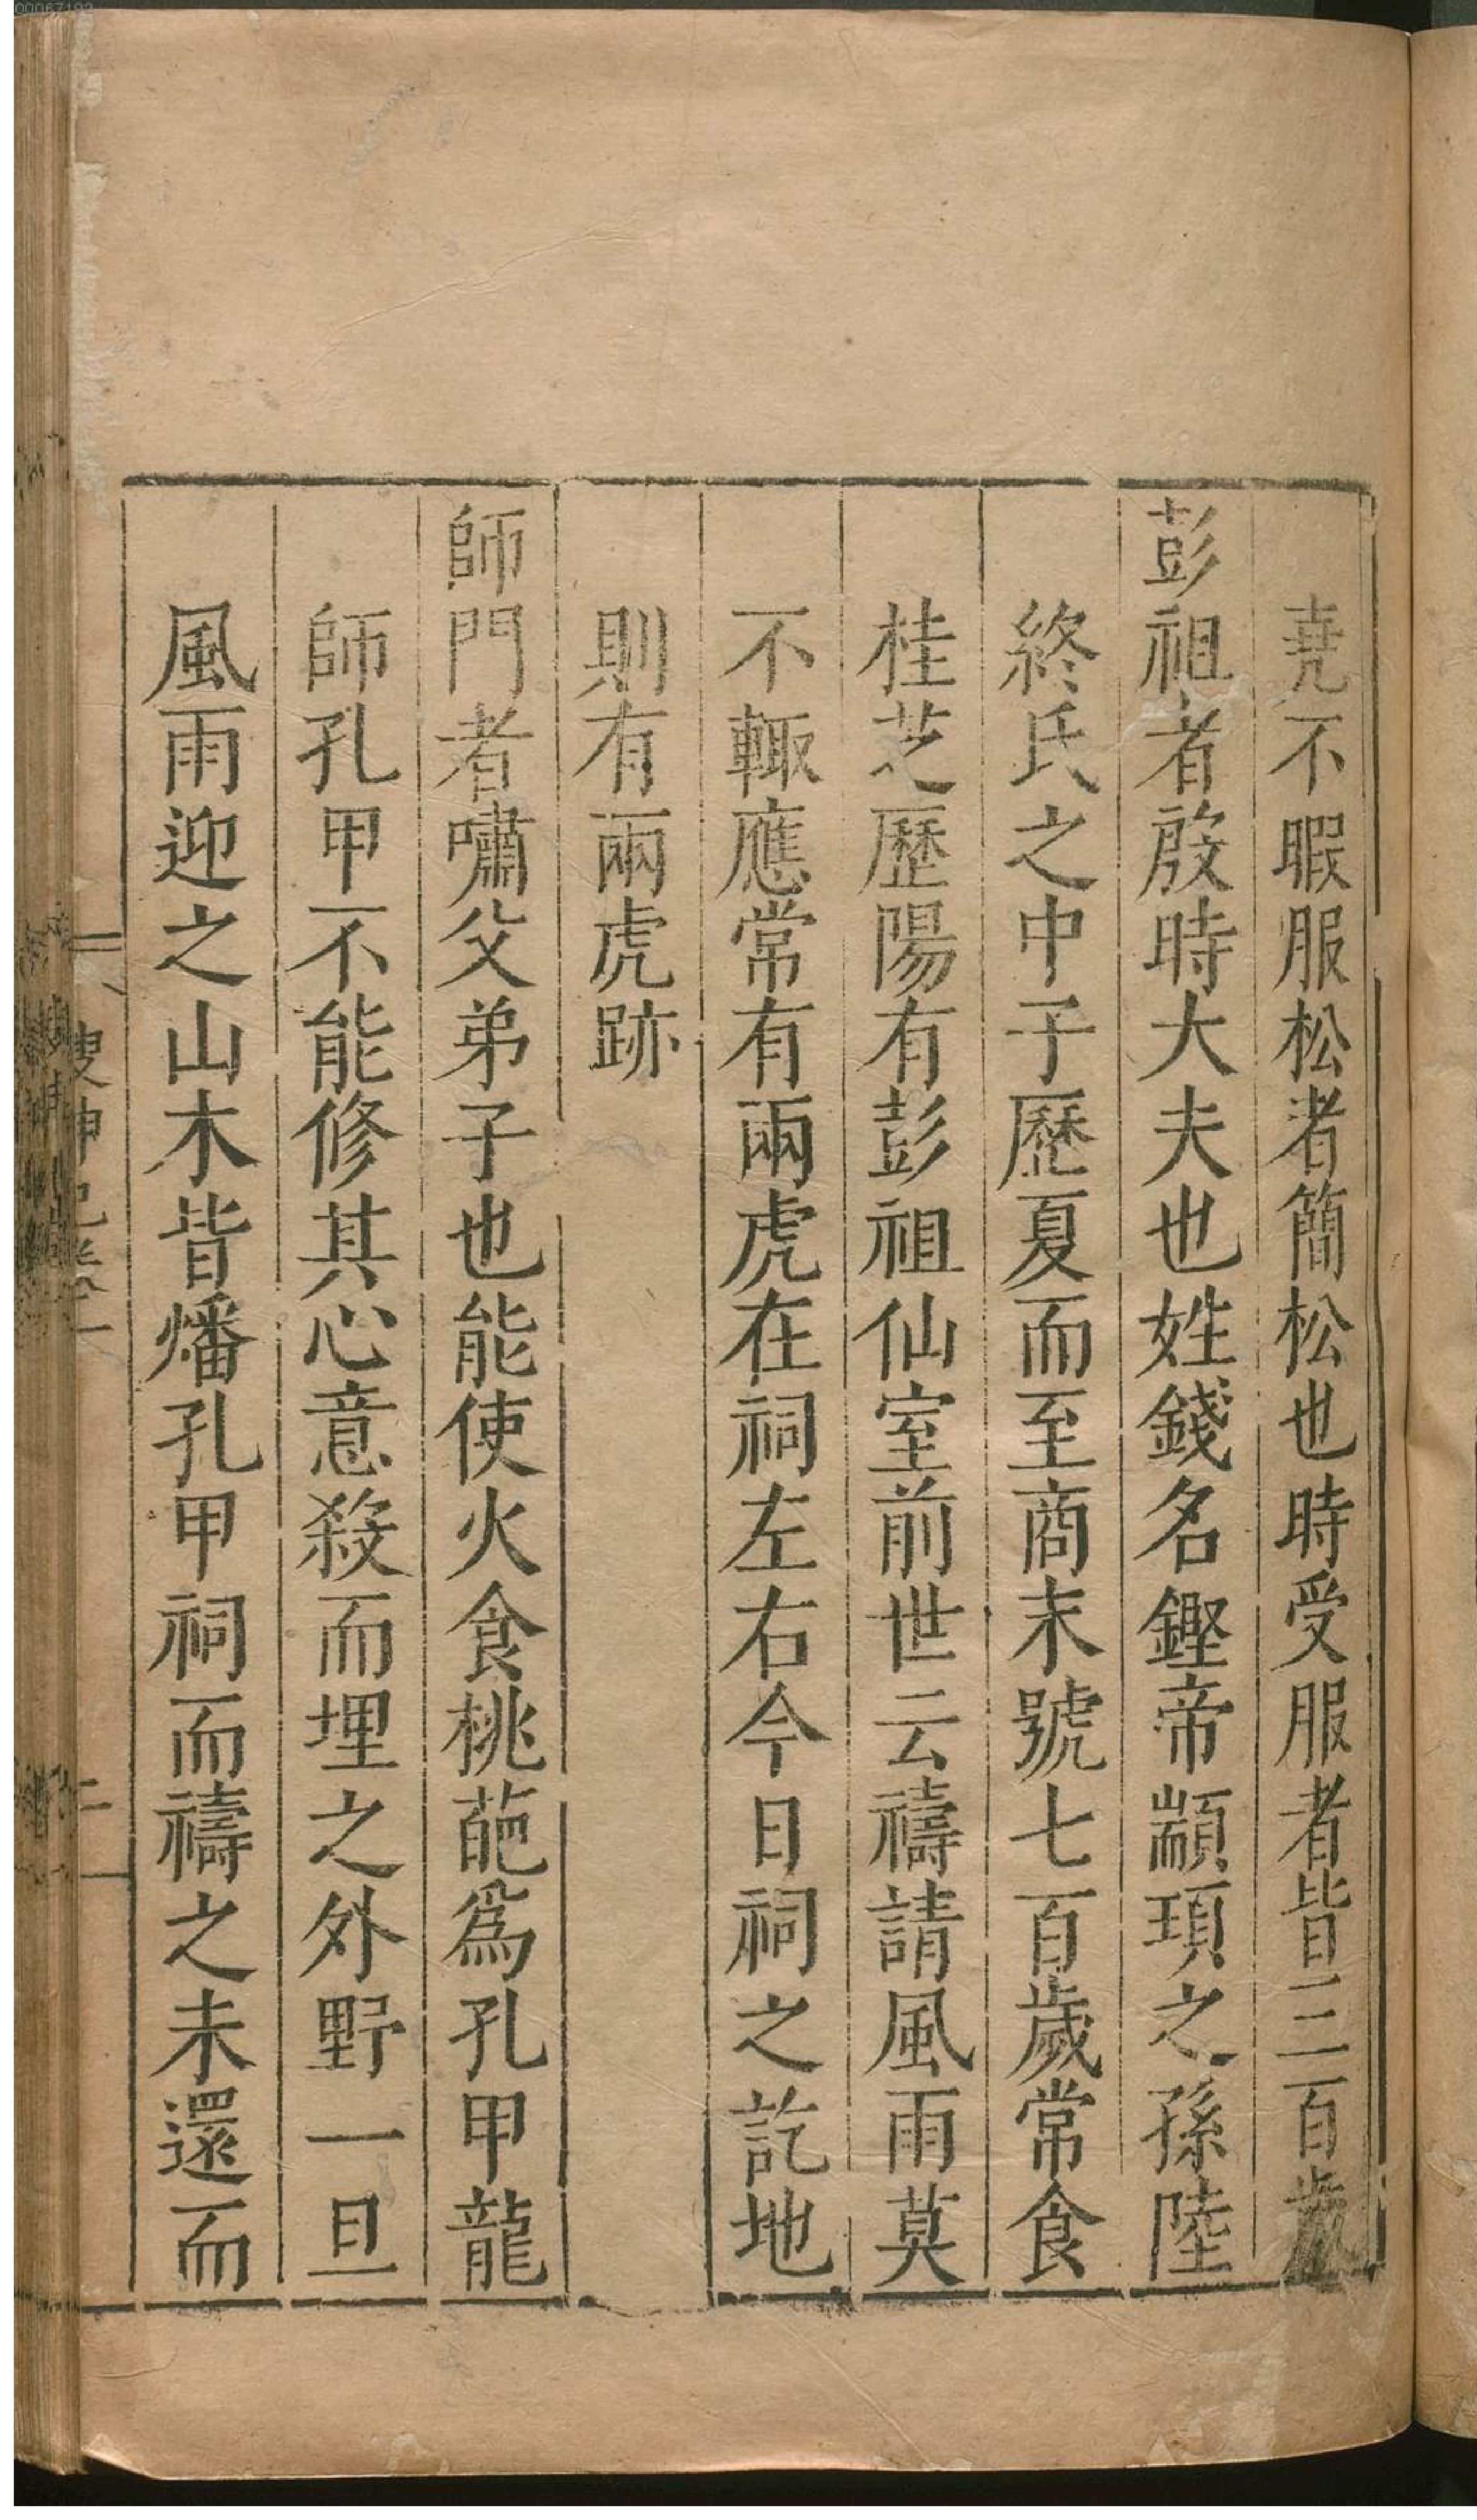 堯不暇服松者簡松也時受服者皆三百歲
彭祖者殷時大夫也姓錢名鏗帝顓頊之孫陸
終氏之中子歷夏而至商末號七百歲常食
桂芝歷陽有彭祖仙室前世云禱請風雨莫
不輙應常有兩虎在祠左右今日祠之訖地
則有兩虎跡
師門者嘯父弟子也能使火食桃葩爲孔甲龍
師孔甲不能修其心意殺而埋之外野一旦
風雨迎之山木皆燔孔甲祠而禱之未還而
搜神記卷一
二
00067192